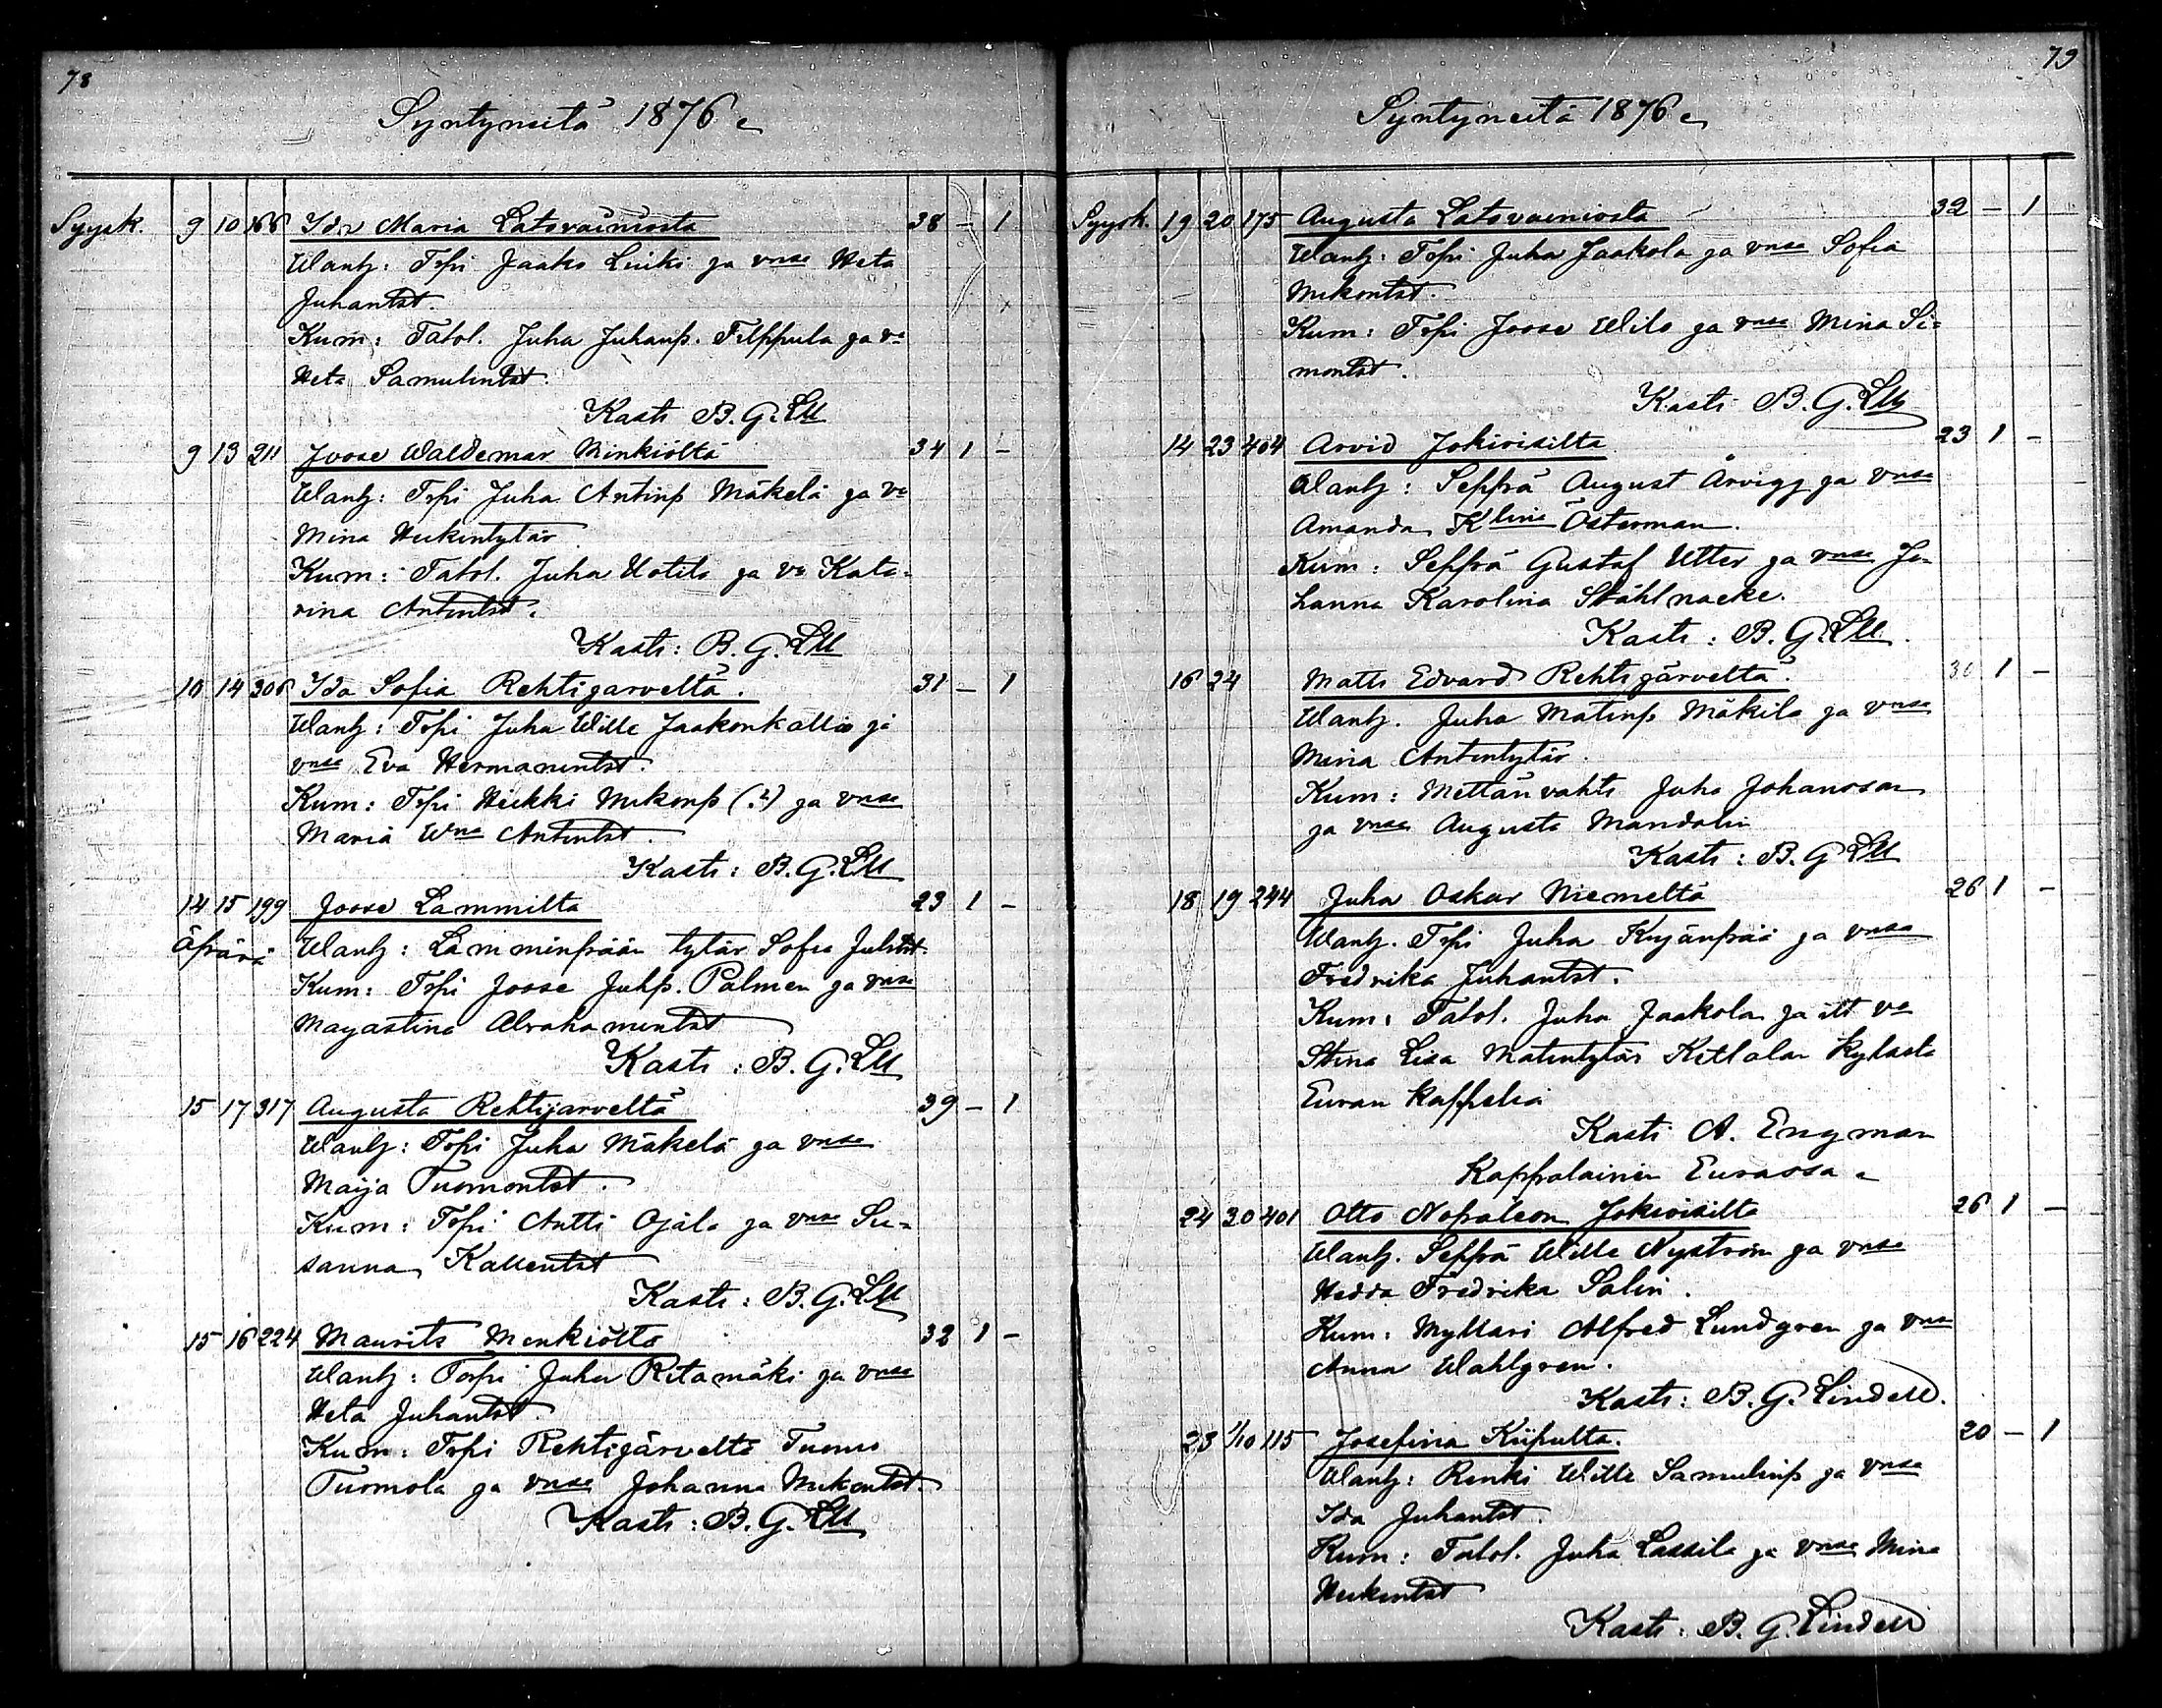 78
Syntyneitä 1876
Syysk. 9 10 166 Ida Maria Latovainiosta 38 - 1
Wanh: Trpi Jaako Linki ja vnsa Heta
Juhantst.
Kum: Talol. Juha Juhanp. Filppula ja va
Heta Samulintst.
Kasti B. G. Lll
9 13 211 Joose Waldemar Minkiöltä 34 1 -
Wanh: Trpi Juha Antinp Mäkelä ja va
Mina Heikintytär
Kum: Talol. Juha Uotila ja va Kata-
rina Antintst.
Kasti: B. G. Lll
10 14 306 Ida Sofia Rehtijärveltä. 31 - 1
Wanh: Trpi Juha Wille Jaakonkallio ja
vnsa Eva Hermanintst.
Kum: Trpi Heikki Mikonp (?) ja vnsa
Maria Wna Antintst.
Kasti: B. G. Lll
14 15 199 Joose Lammilta 23 1 -
Äpärä Wanh: Lamminpään tytär Sofia Juhtst.
Kum: Trpi Joose Juhp. Palmen ja vnsa
Majastina Abrahamintst
Kasti: B. G. Lll
15 17 317 Augusta Rehtijärveltä 39 - 1
Wanh: Trpi Juha Mäkelä ja vnsa
Maija Tuomontst.
Kum: Trpi Antti Ojala ja vnsa Su-
sanna Kallentst
Kasti: B. G. Lll
15 16 224 Maurits Menkiöltä 32 1 -
Wanh: Torpi Juha Ritamäki ja vnsa
Heta Juhantst.
Kum: Trpi Rehtijärveltä Tuomo
Tuomola ja vnsa Johanna Mikontst.
Kasti: B. G. Lll
79
Syntyneitä 1876
Syysk. 19 20 175 Augusta Latovainiosta 32 - 1
Wanh: Trpi Juha Jaakola ja vnsa Sofia
Mikontst.
Kum: Trpi Joose Wilo ja vnsa Mina Si-
montst.
Kasti B. G. Lll
14 23 404 Arvid Jokivisilta 23 1 -
Wanh: Seppä August Arvigg ja vnsa
Amanda Klina Österman.
Kum: Seppä Gustaf Utter ja vnsa Jo-
hanna Karolina Ståhlnacke.
Kasti: B. G. Lll.
16 24 Matti Edvard Rehtijärveltä. 30 1 -
Wanh. Juha Matinp Mäkilä ja vnsa
Mina Antintytär.
Kum: Mettänvahti Juha Johansson
ja vnsa Augusta Mandolin
Kasti: B. G Lll
18 19 244 Juha Oskar Niemeltä 26 1 -
Wanh. Trpi Juha Kujänpää ja vnsa
Fredrika Juhantst.
Kum: Talol. Juha Jaakola ja itt va
Stina Lisa Matintytär Kittalan kylästä
Euran kappelia
Kasti A. Engman
Kappalainen Eurassa
24 30 401 Otto Napoleon Jokivisilta 26 1 -
Wanh. Seppä Wille Nyström ja vnsa
Hedda Fredrika Salin.
Kum: Myllari Alfred Lundgren ja vnsa
Anna Wahlgren.
Kasti: B. G. Lindell.
23 1/10 115 Josefina Kiipulta. 20 - 1
Wanh: Renki Wille Samulinp ja vnsa
Ida Juhantst.
Kum: Talol. Juha Lassila ja vnsa Mina
Heikintst
Kasti: B. G. Lindell